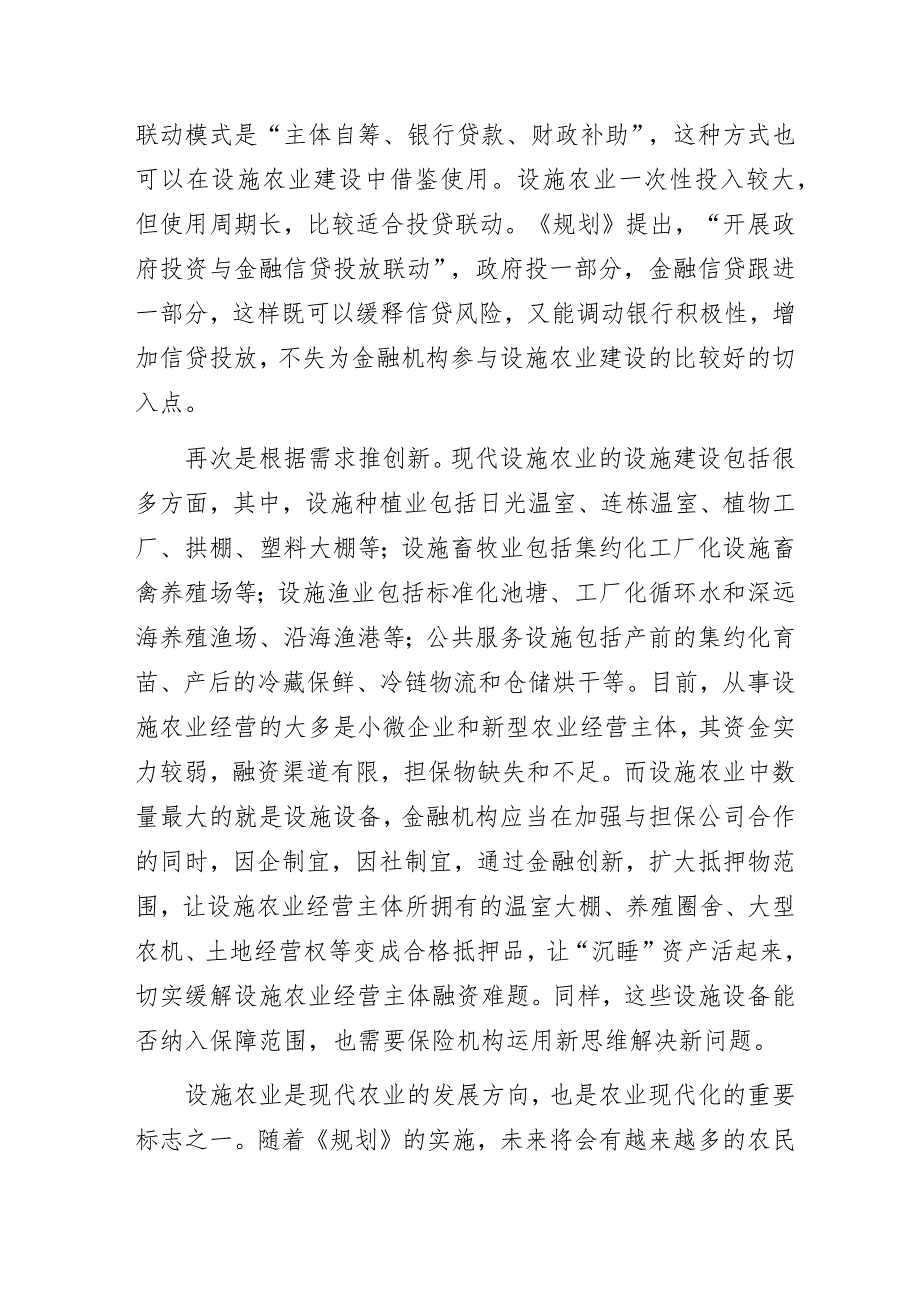 联动模式是“主体自筹、银行贷款、财政补助”，这种方式也
可以在设施农业建设中借鉴使用。设施农业一次性投入较大，
但使用周期长，比较适合投贷联动。《规划》提出，“开展政
府投资与金融信贷投放联动”，政府投一部分，金融信贷跟进
一部分，这样既可以缓释信贷风险，又能调动银行积极性，增
加信贷投放，不失为金融机构参与设施农业建设的比较好的切
入点。
再次是根据需求推创新。现代设施农业的设施建设包括很
多方面，其中，设施种植业包括日光温室、连栋温室、植物工
厂、拱棚、塑料大棚等；设施畜牧业包括集约化工厂化设施畜
禽养殖场等；设施渔业包括标准化池塘、工厂化循环水和深远
海养殖渔场、沿海渔港等；公共服务设施包括产前的集约化育
苗、产后的冷藏保鲜、冷链物流和仓储烘干等。目前，从事设
施农业经营的大多是小微企业和新型农业经营主体，其资金实
力较弱，融资渠道有限，担保物缺失和不足。而设施农业中数
量最大的就是设施设备，金融机构应当在加强与担保公司合作
的同时，因企制宜，因社制宜，通过金融创新，扩大抵押物范
围，让设施农业经营主体所拥有的温室大棚、养殖圈舍、大型
农机、土地经营权等变成合格抵押品，让“沉睡”资产活起来，
切实缓解设施农业经营主体融资难题。同样，这些设施设备能
否纳入保障范围，也需要保险机构运用新思维解决新问题。
设施农业是现代农业的发展方向，也是农业现代化的重要
标志之一。随着《规划》的实施，未来将会有越来越多的农民